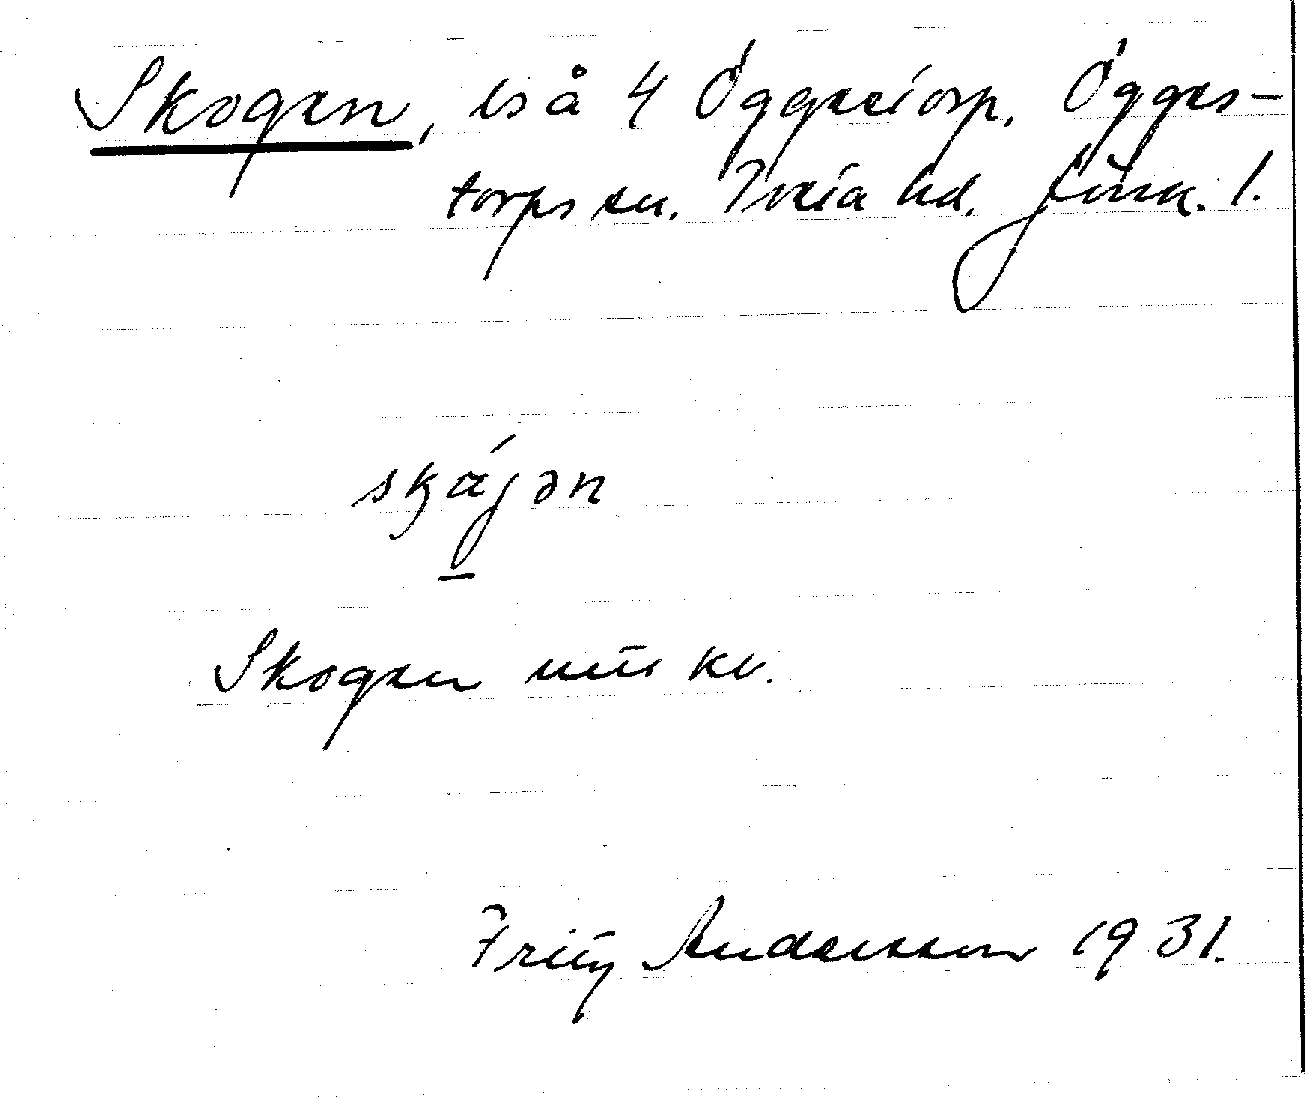 Skogen, ls å 4 Öggestorp, Ögges-
torps sn. Tveta hd. Jönk. l.
skáɡən
Skogen utt kv.
Fritz Andersson 1931.